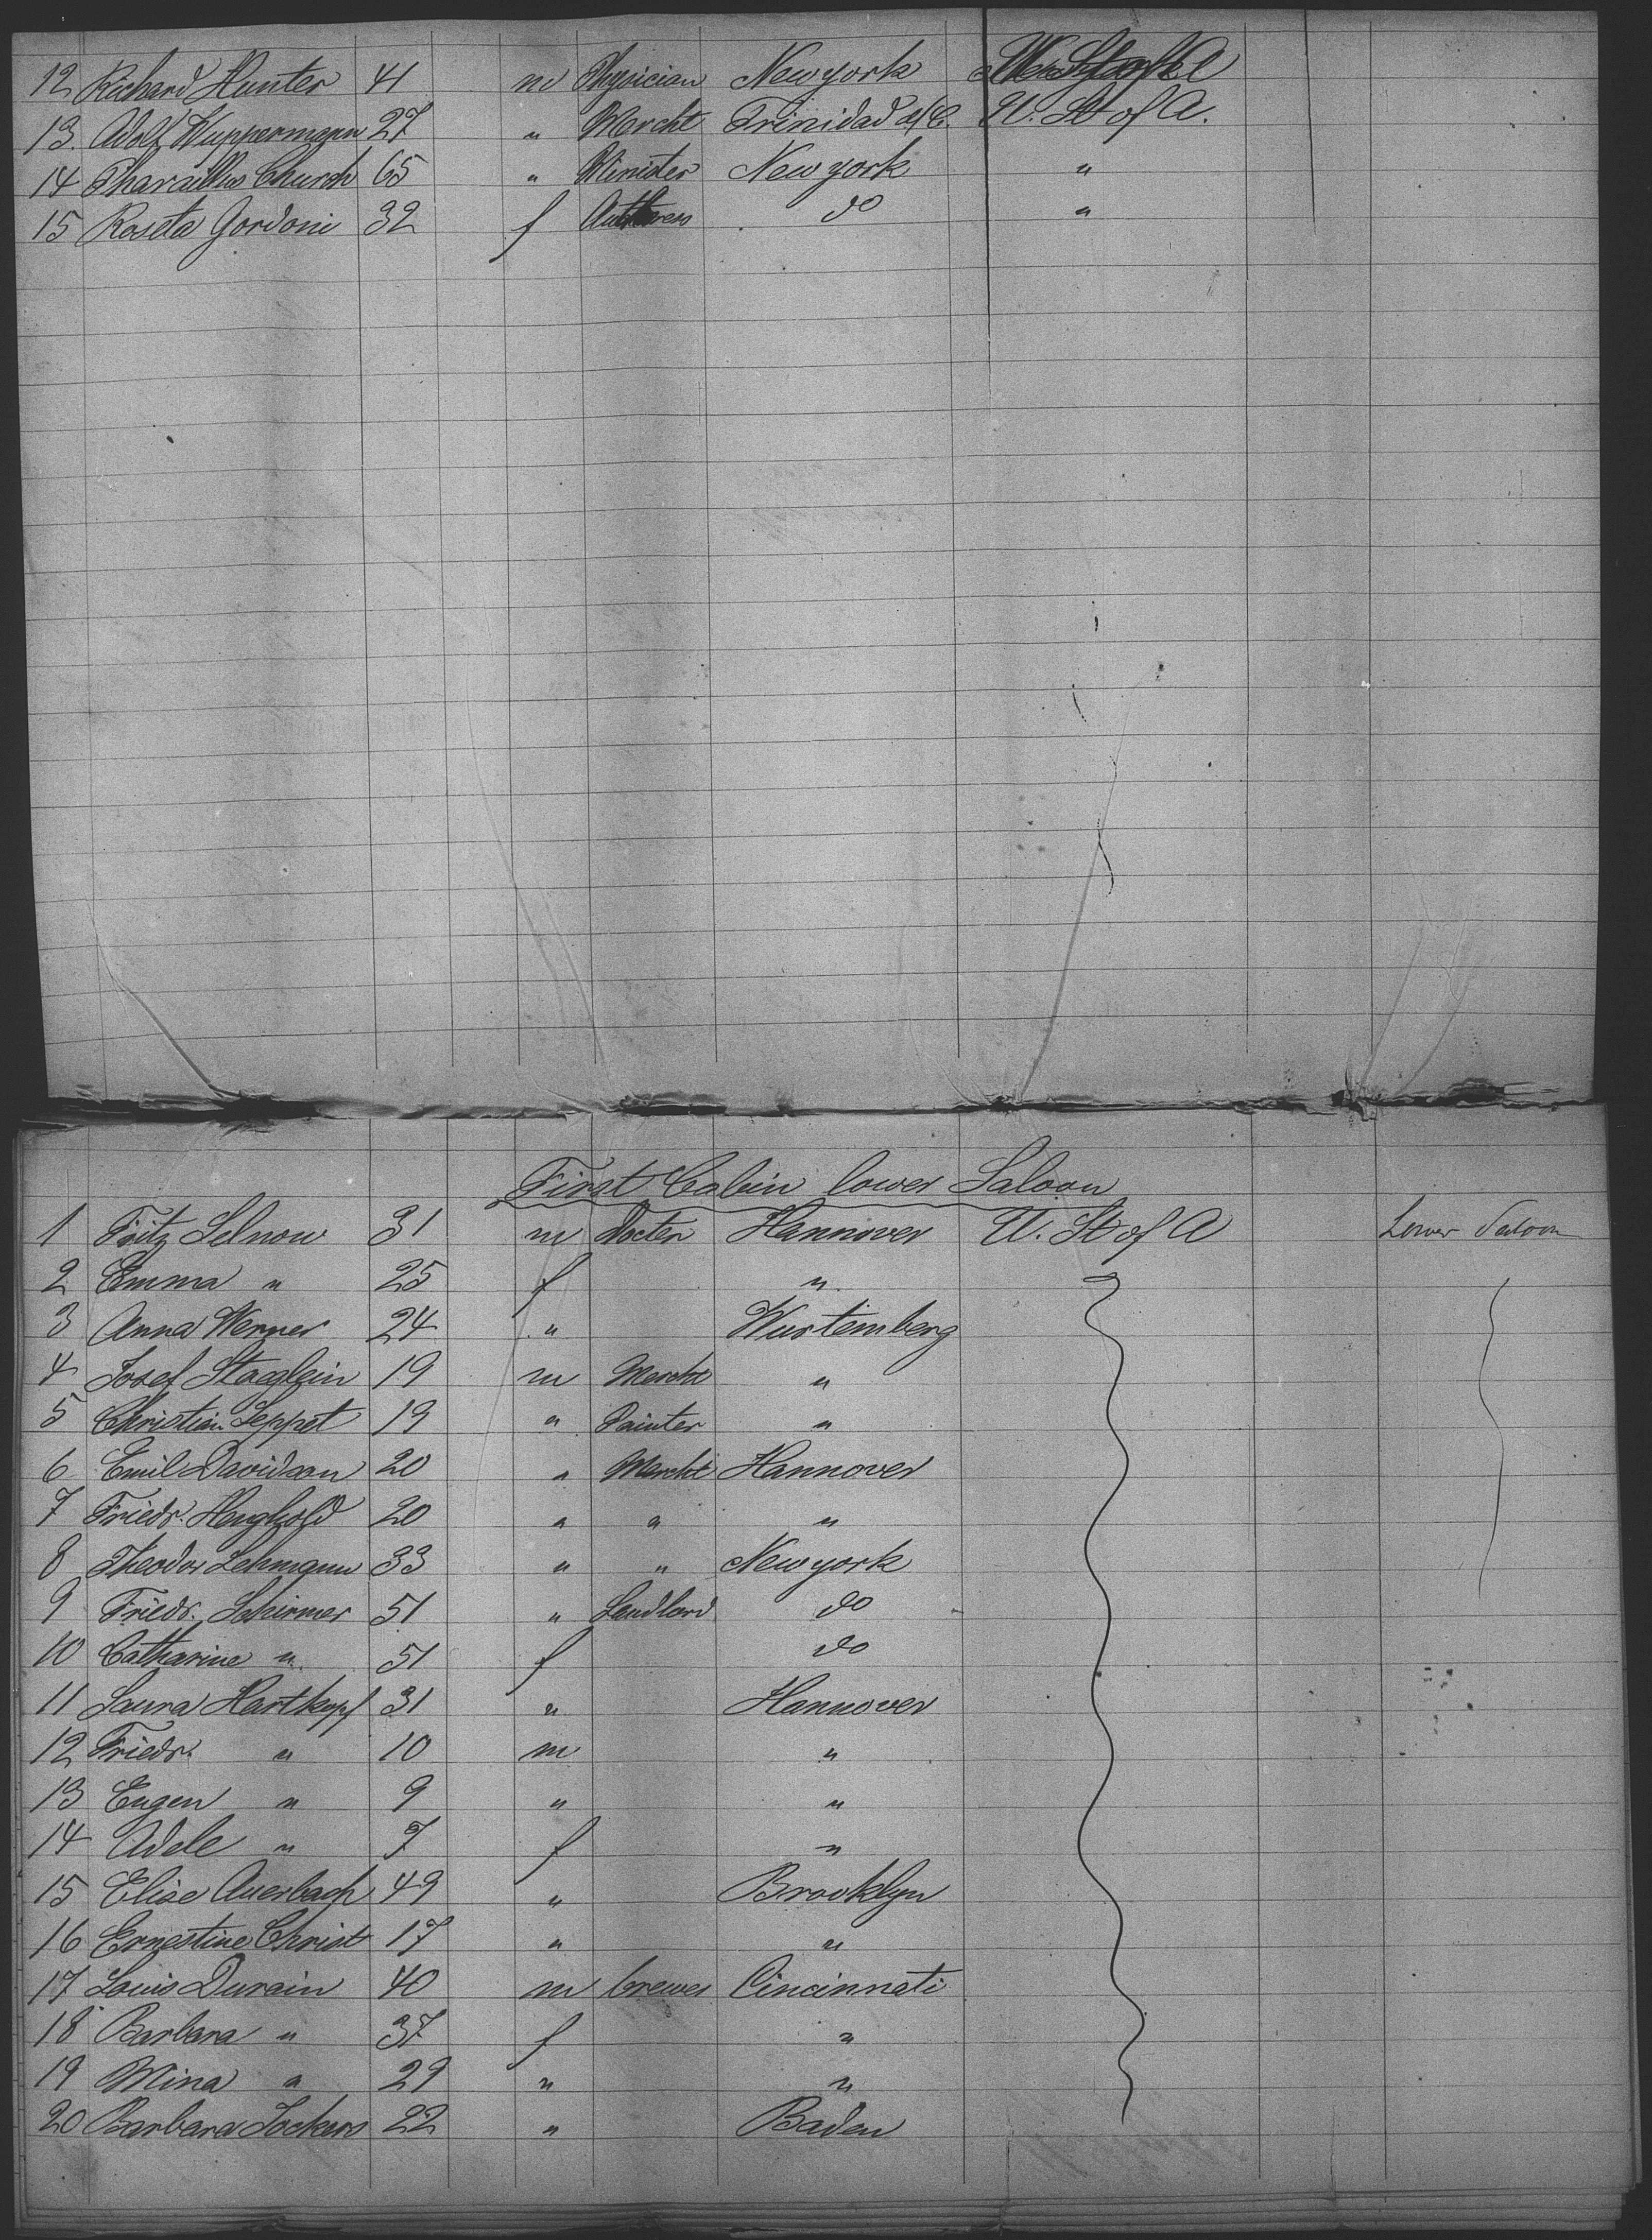 12 Richard Hunter 41 m Physician New york U. St of A
13. Adolf Wuppermann 27 " Mercht Trinidad d/C. U. St of A.
14 Pharcillus Church 65 " Minister New york "
15 Roseta Gordoni 32 f Authoress do "
First Cabin lower Saloon
1 Fritz Selnow 31 m Docter Hannover U. St of A Lower Saloon
2 Emma " 25 f "
3 Anna Werner 24 " Wurtemberg
4 Josef Staglein 19 m Mercht "
5 Christian Seppet 19 " Painter "
6 Emil Davidson 20 " Mercht Hannover
7 Friedr. 20 " " "
8 Theodor Lehmann 33 " " New york
9 Friedr. Schirmer 51 " Landlord do
10 Catharine " 51 f do
11 Laura Hartkopf 31 " Hannover
12 Friedr. " 10 m "
13 Eugen " 9 " "
14 Adele " 7 f "
15 Elise Auerbach 49 " Brooklyn
16 Ernestine Christ 17 " "
17 Louis Durain 40 m brewer Cincinnati
18 Barbara " 37 f "
19 Mina " 29 " "
20 Barbara Jockers 22 " Baden